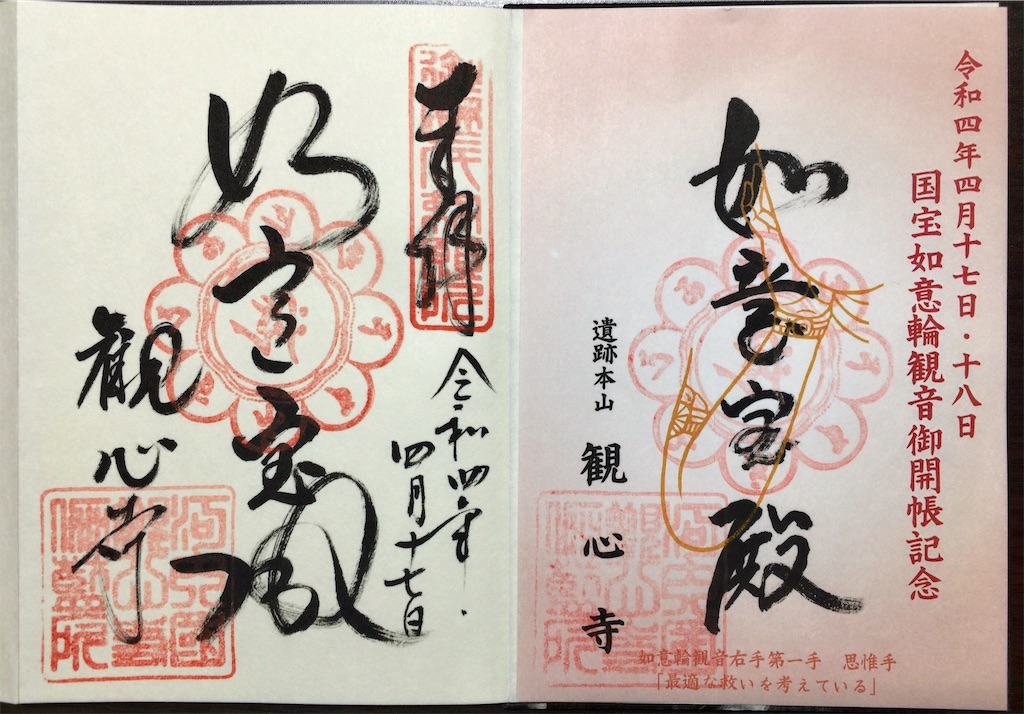 令和四年四月十七日・十八日
国宝如意輪観音御開帳記念
如意宝殿
遺跡本山 観心寺
如意輪観音右手第一手 思惟手
「最適な救いを考えている」
奉拝
令和四年
四月十七日
如意宝殿
観心寺